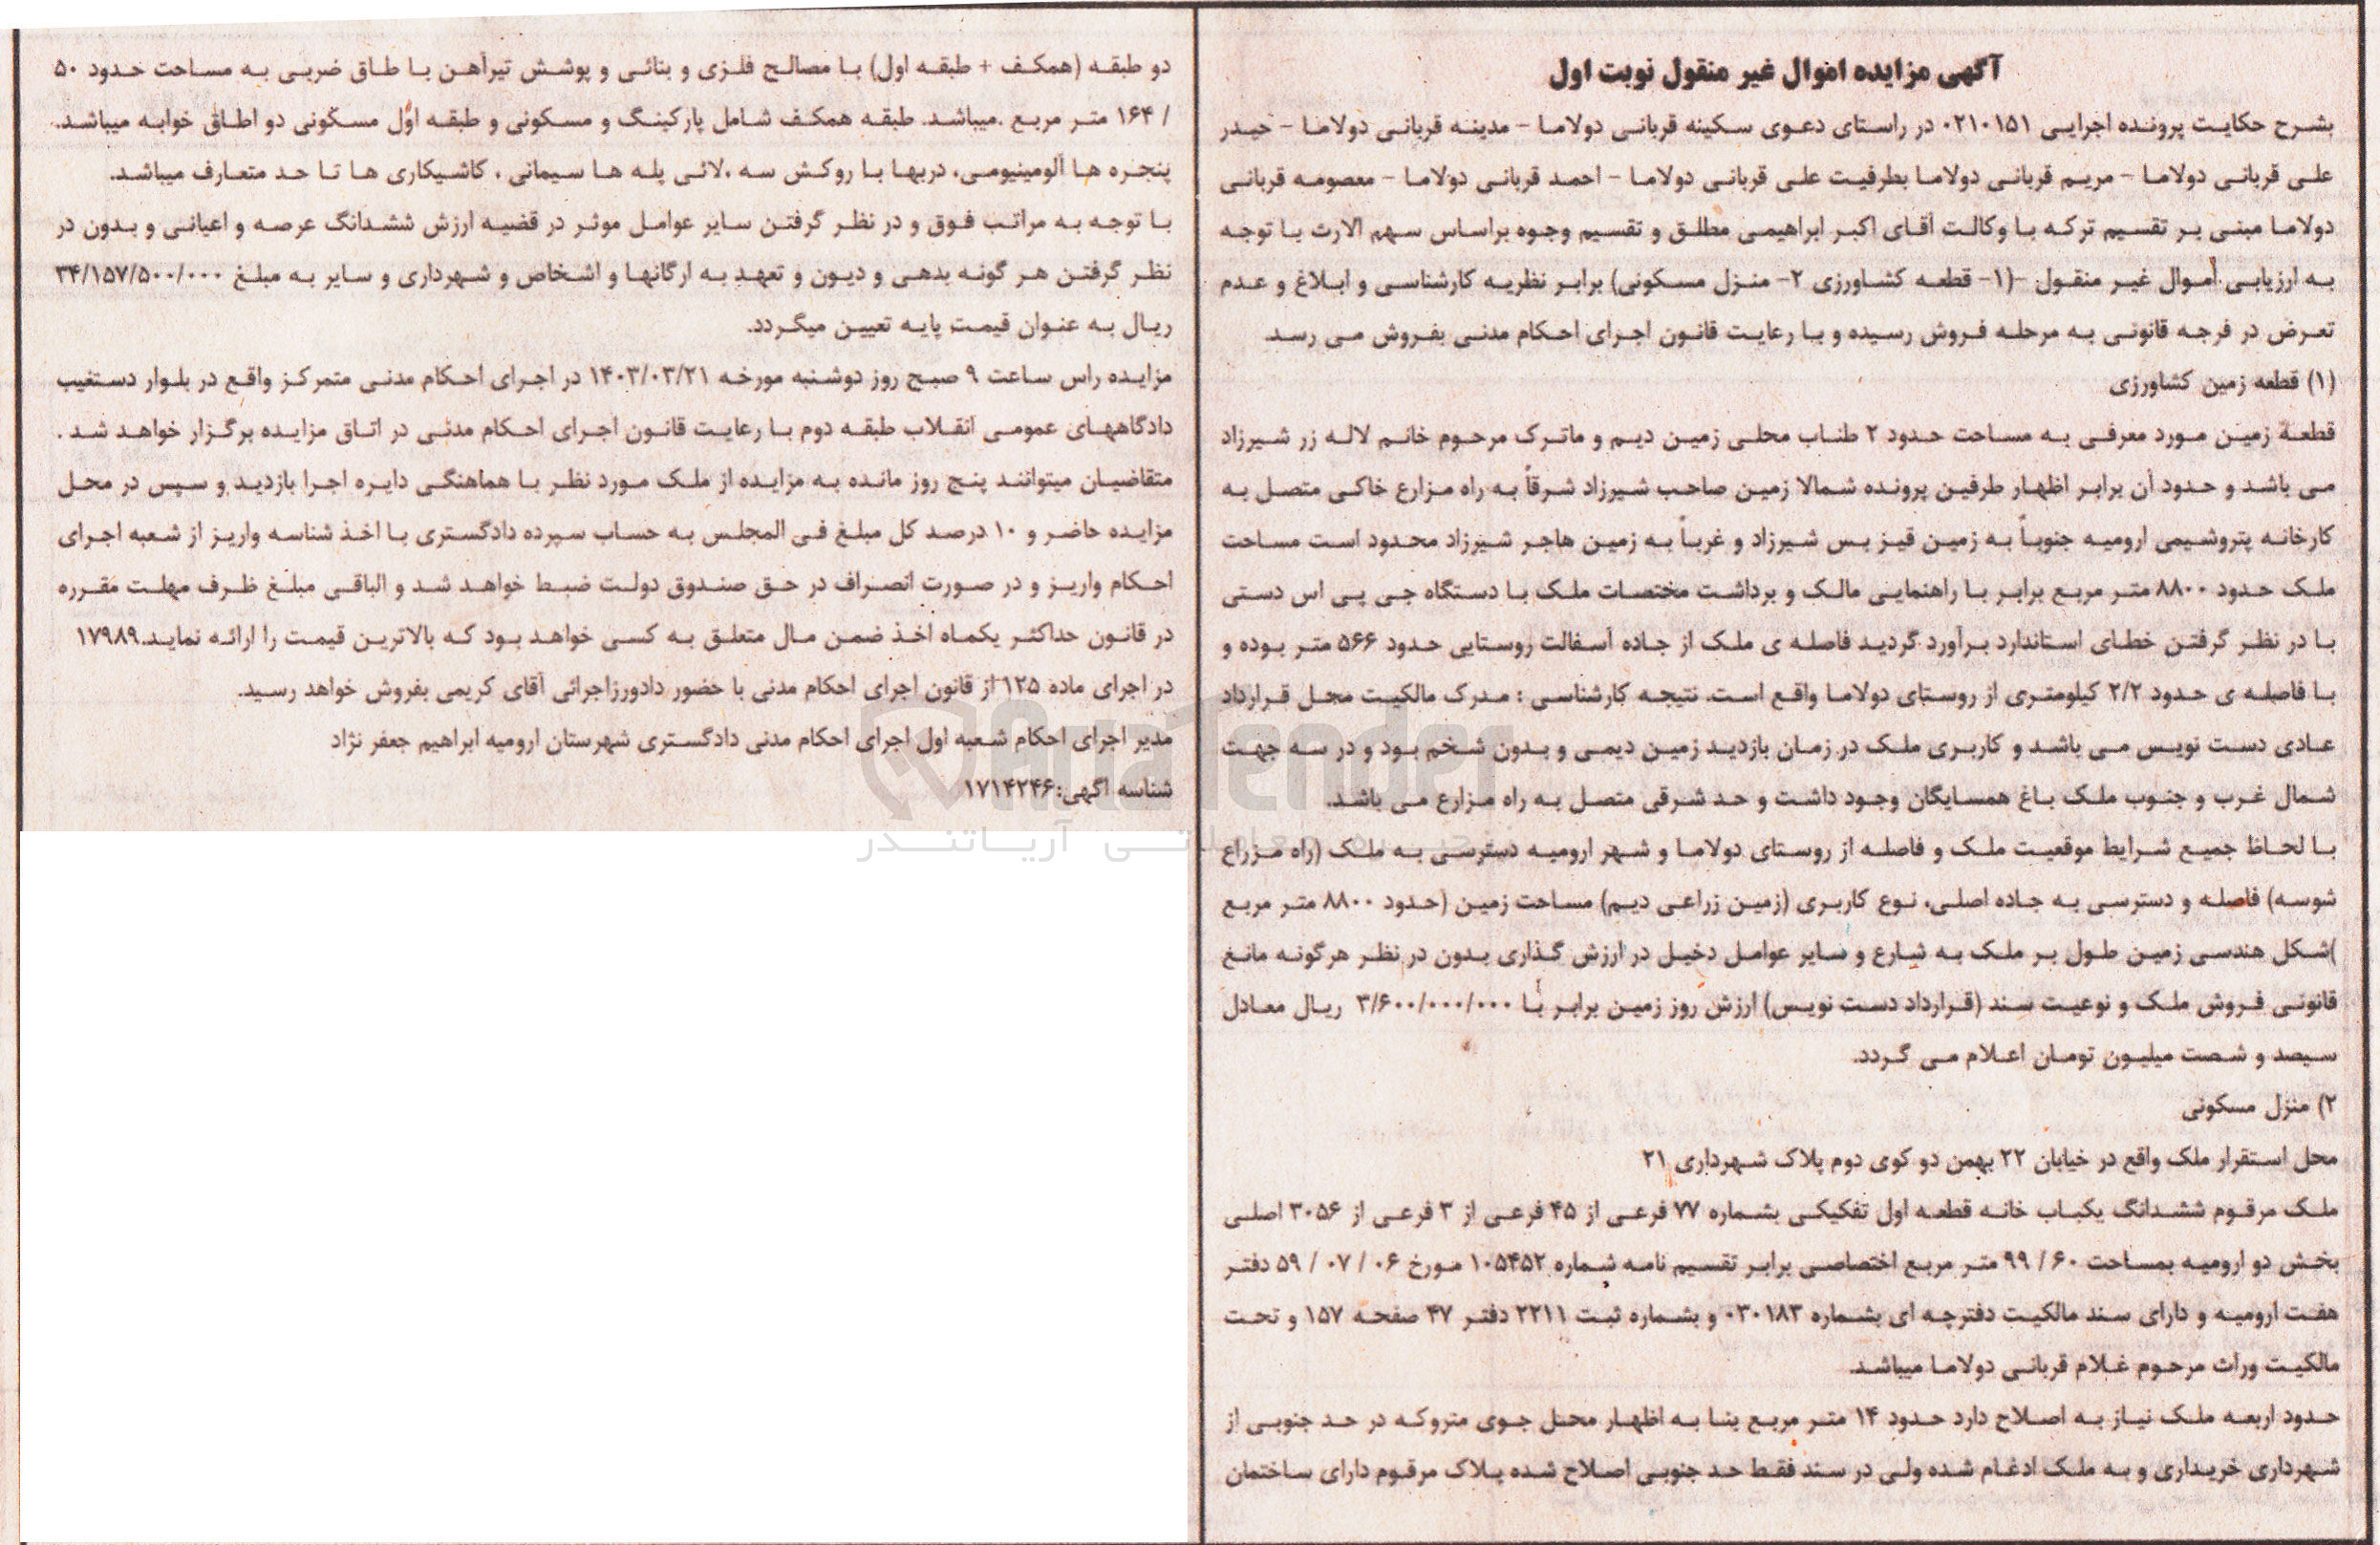 آگهی مزایده اموال غیر منقول نوبت اول
بشرح حکایت پرونده اجرایی ۰۲۱۰۱۵۱ در راستای دعوی سکینه قربانی دولاما - مدینه قربانی دولاما - حیدر
علی قربانی دولاما - مریم قربانی دولاما بطرفیت علی قربانی دولاما - احمد قربانی دولاما - معصومه قربانی
دولاما مبنی بر تقسیم ترکه با وکالت آقای اکبر ابراهیمی مطلق و تقسیم وجوه براساس سهم الارث با توجه
به ارزیابی اموال غیر منقول -(۱- قطعه کشاورزی ۲- منزل مسکونی) برابر نظریه کارشناسی و ابلاغ و عدم
تعرض در فرجه قانونی به مرحله فروش رسیده و با رعایت قانون اجرای احکام مدنی بفروش می رسد.
(۱) قطعه زمین کشاورزی
قطعه زمین مورد معرفی به مساحت حدود ۲ طناب محلی زمین دیم و ماترک مرحوم خانم لاله زر شیرزاد
می باشد و حدود آن برابر اظهار طرفین پرونده شمالا زمین صاحب شیرزاد شرقاً به راه مزارع خاکی متصل به
کارخانه پتروشیمی ارومیه جنوباً به زمین قیز بس شیرزاد و غرباً به زمین هاجر شیرزاد محدود است مساحت
ملک حدود ۸۸۰۰ متر مربع برابر با راهنمایی مالک و برداشت مختصات ملک با دستگاه جی پی اس دستی
با در نظر گرفتن خطای استاندارد برآورد گردید فاصله ی ملک از جاده آسفالت روستایی حدود ۵۶۶ متر بوده و
با فاصله ی حدود ۲/۲ کیلومتری از روستای دولاما واقع است. نتیجه کارشناسی : مدرک مالکیت محل قرارداد
عادی دست نویس می باشد و کاربری ملک در زمان بازدید زمین دیمی و بدون شخم بود و در سه جهت
شمال غرب و جنوب ملک باغ همسایگان وجود داشت و حد شرقی متصل به راه مزارع می باشد.
با لحاظ جمیع شرایط موقعیت ملک و فاصله از روستای دولاما و شهر ارومیه دسترسی به ملک (راه مزراع
شوسه) فاصله و دسترسی به جاده اصلی، نوع کاربری (زمین زراعی دیم) مساحت زمین (حدود ۸۸۰۰ متر مربع
)شکل هندسی زمین طول بر ملک به شارع و سایر عوامل دخیل در ارزش گذاری بدون در نظر هرگونه مانع
قانونی فروش ملک و نوعیت سند (قرارداد دست نویس) ارزش روز زمین برابر با ۳/۶۰۰/۰۰۰/۰۰۰ ریال معادل
سیصد و شصت میلیون تومان اعلام می گردد.
۲) منزل مسکونی
محل استقرار ملک واقع در خیابان ۲۲ بهمن دو کوی دوم پلاک شهرداری ۲۱
ملک مرقوم ششدانگ یکباب خانه قطعه اول تفکیکی بشماره ۷۷ فرعی از ۴۵ فرعی از ۳ فرعی از ۳۰۵۶ اصلی
بخش دو ارومیه بمساحت ۶۰ / ۹۹ متر مربع اختصاصی برابر تقسیم نامه شماره ۱۰۵۴۵۲ مورخ ۰۶ / ۰۷ / ۵۹ دفتر
هفت ارومیه و دارای سند مالکیت دفترچه ای بشماره ۰۳۰۱۸۳ و بشماره ثبت ۲۲۱۱ دفتر ۴۷ صفحه ۱۵۷ و تحت
مالکیت وراث مرحوم غلام قربانی دولاما میباشد.
حدود اربعه ملک نیاز به اصلاح دارد حدود ۱۴ متر مربع بنا به اظهار محل جوی متروکه در حد جنوبی از
شهرداری خریداری و به ملک ادغام شده ولی در سند فقط حد جنوبی اصلاح شده پلاک مرقوم دارای ساختمان
دو طبقه (همکف + طبقه اول) با مصالح فلزی و بنائی و پوشش تیرآهن با طاق ضربی به مساحت حدود ۵۰
/ ۱۶۴ متر مربع .میباشد. طبقه همکف شامل پارکینگ و مسکونی و طبقه اول مسکونی دو اطاق خوابه میباشد.
پنجره ها آلومینیومی، دربها با روکش سه ،لائی پله ها سیمانی ، کاشیکاری ها تا حد متعارف میباشد.
با توجه به مراتب فوق و در نظر گرفتن سایر عوامل موثر در قضیه ارزش ششدانگ عرصه و اعیانی و بدون در
نظر گرفتن هر گونه بدهی و دیون و تعهد به ارگانها و اشخاص و شهرداری و سایر به مبلغ ۳۴/۱۵۷/۵۰۰/۰۰۰
ریال به عنوان قیمت پایه تعیین میگردد.
مزایده راس ساعت ۹ صبح روز دوشنبه مورخه ۱۴۰۳/۰۳/۲۱ در اجرای احکام مدنی متمرکز واقع در بلوار دستغیب
دادگاههای عمومی انقلاب طبقه دوم با رعایت قانون اجرای احکام مدنی در اتاق مزایده برگزار خواهد شد .
متقاضیان میتوانند پنج روز مانده به مزایده از ملک مورد نظر با هماهنگی دایره اجرا بازدید و سپس در محل
مزایده حاضر و ۱۰ درصد کل مبلغ فی المجلس به حساب سپرده دادگستری با اخذ شناسه واریز از شعبه اجرای
احکام واریز و در صورت انصراف در حق صندوق دولت ضبط خواهد شد و الباقی مبلغ ظرف مهلت مقرره
در قانون حداکثر یکماه اخذ ضمن مال متعلق به کسی خواهد بود که بالاترین قیمت را ارائه نماید.۱۷۹۸۹
در اجرای ماده ۱۲۵ از قانون اجرای احکام مدنی با حضور دادورزاجرائی آقای کریمی بفروش خواهد رسید.
مدیر اجرای احکام شعبه اول اجرای احکام مدنی دادگستری شهرستان ارومیه ابراهیم جعفر نژاد
شناسه آگهی:۱۷۱۴۲۴۶
AriaTender
آریاتندر